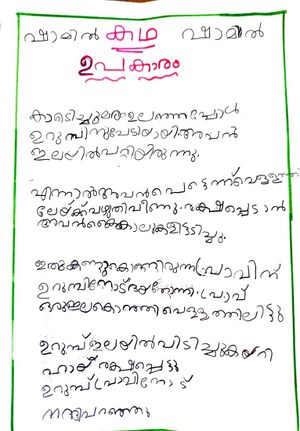 ഷാമിൽ കഥ ഷാമിൽ
ഉപകാരം
കാറ്റടിച്ചുമരം ഉലഞ്ഞപ്പോൾ
ഉറുമ്പിനുപേടിയായിഅവൻ
ഇലയിൽപറ്റിയിരുന്നു.
എന്നാൽഅവൻപെട്ടെന്ന്വെള്ളത്തി
ലേയ്ക്ക്വഴുതിവീണു. രക്ഷപ്പെടാൻ
അവൻകൈകാലുകളിട്ടടിച്ചു.
ഇതുകണ്ടുകൊണ്ടിരുന്നപ്രാവിന്
ഉറുമ്പിനോട്ദയതോന്നി. പ്രാവ്
ഒരുഇലകൊത്തിവെള്ളത്തിലിട്ടു
ഉറുമ്പ്ഇലയിൽപിടിച്ചുകയറി
ഹായ് രക്ഷപ്പെട്ടു
ഉറുമ്പ്പ്രാവിനോട്
നന്ദിപറഞ്ഞു